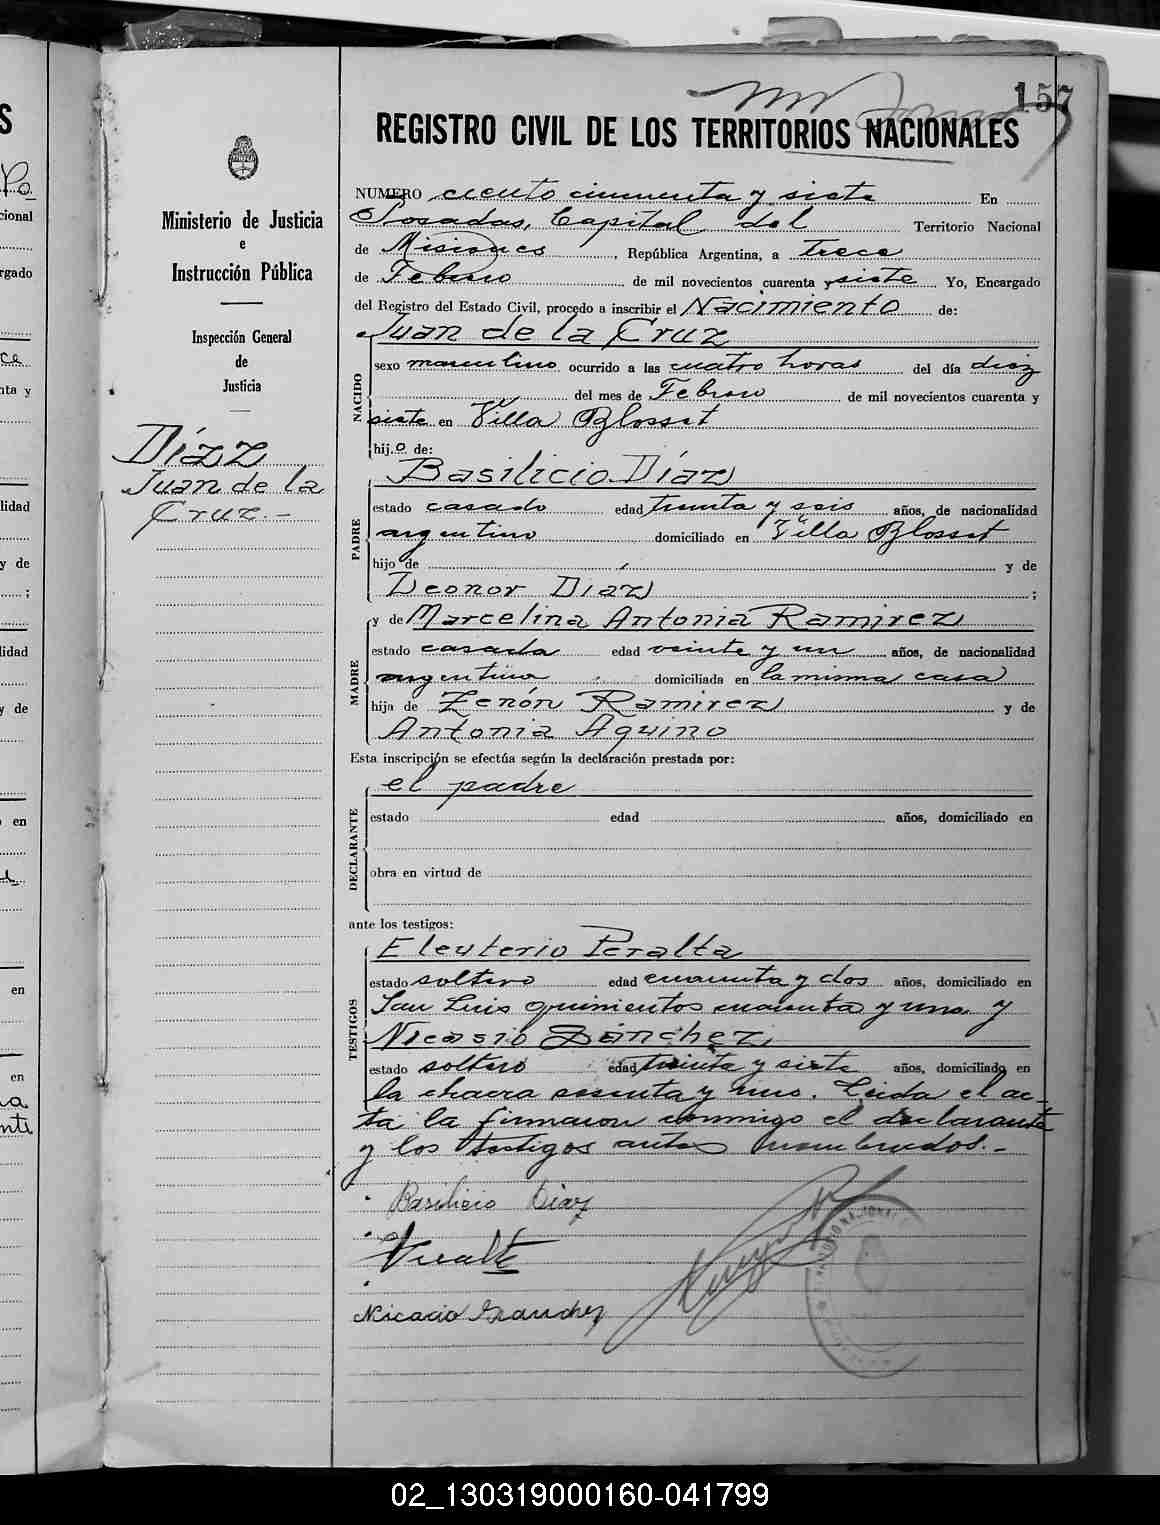 157
REGISTRO CIVIL DE LOS TERRITORIOS NACIONALES
Ministerio de Justicia
e
Instrucción Pública
Inspección General
de
Justicia
Díaz
Juan de la
Cruz.-
NUMERO ciento cincuenta y siete En
Posadas, Capital del Territorio Nacional
de Misiones, República Argentina, a trece
de Febrero de mil novecientos cuarenta y siete Yo, Encargado
del Registro del Estado Civil, procedo a inscribir el Nacimiento de:
Juan de la Cruz
NACIDO
sexo masculino ocurrido a las cuatro horas del día diez
del mes de Febrero de mil novecientos cuarenta y
siete en Villa Blosset
hijo de:
Basilicio Díaz
PADRE
estado casado edad treinta y seis años, de nacionalidad
argentino domiciliado en Villa Blosset
hijo de y de
Leonor Díaz;
y de Marcelina Antonia Ramirez
MADRE
estado casada edad veinte y un años, de nacionalidad
argentina domiciliada en la misma casa
hija de Zenón Ramirez y de
Antonia Aquino
Esta inscripción se efectúa según la declaración prestada por:
el padre
DECLARANTE
estado edad años, domiciliado en
obra en virtud de
ante los testigos:
Eleuterio Peralta
TESTIGOS
estado soltero edad cuarenta y dos años, domiciliado en
San Luis quinientos cuarenta y uno y
Nicasio Sánchez
estado soltero edad treinta y siete años, domiciliado en
la chacra sesenta y uno. Leida el ac-
ta la firmaron conmigo el declarante
y los testigos antes nombrados.-
Basilicio Diaz
Nicacio Sanchez
02_130319000160-041799